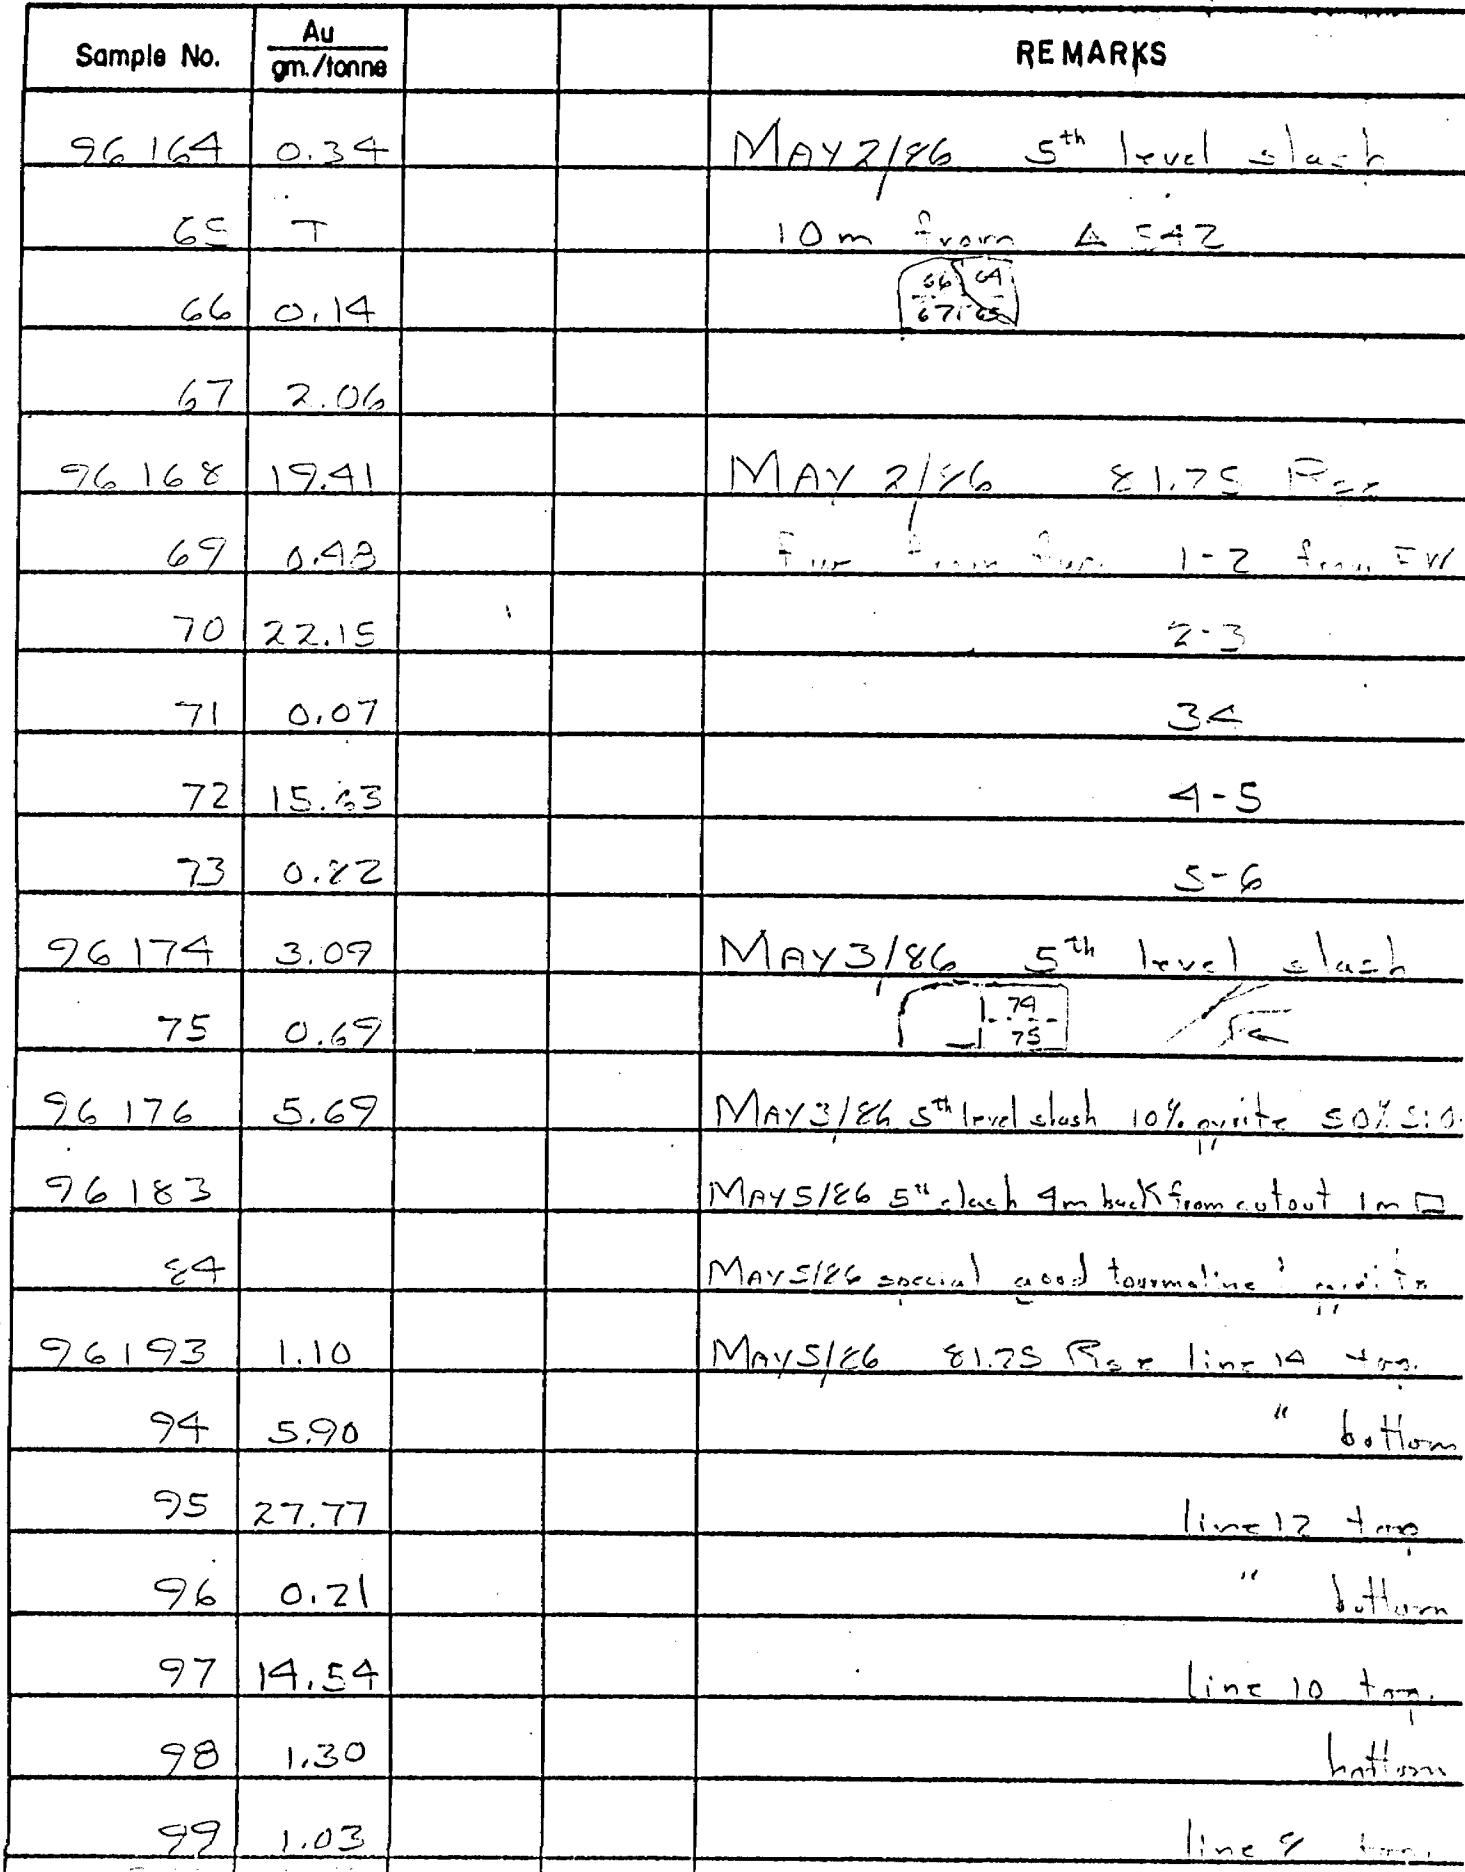 Sample No. Au gm./tonne REMARKS
96 164 0.34 MAY 2/86 5th level slash
65 T 10 m from Δ 542
66 0.14 66 64
67 65
67 2.06
96 168 19.41 MAY 2/86 81.75 Rse
69 0.48 1-2 from FW
70 22.15 2-3
71 0.07 34
72 15.63 4-5
73 0.82 5-6
96 174 3.09 MAY 3/86 5th level slash
75 0.69 74
75
96 176 5.69 MAY 3/86 5th level slash 10% pyrite 50%
96 183 MAY 5/86 5th slash 4m back from cutout 1m □
84 MAY 5/86 special good tourmaline pyrite
96 193 1.10 MAY 5/86 81.75 Rse line 14 top
94 5.90 " bottom
95 27.77 line 12 top
96 0.21 " bottom
97 14.54 line 10 top
98 1.30 bottom
99 1.03 line top